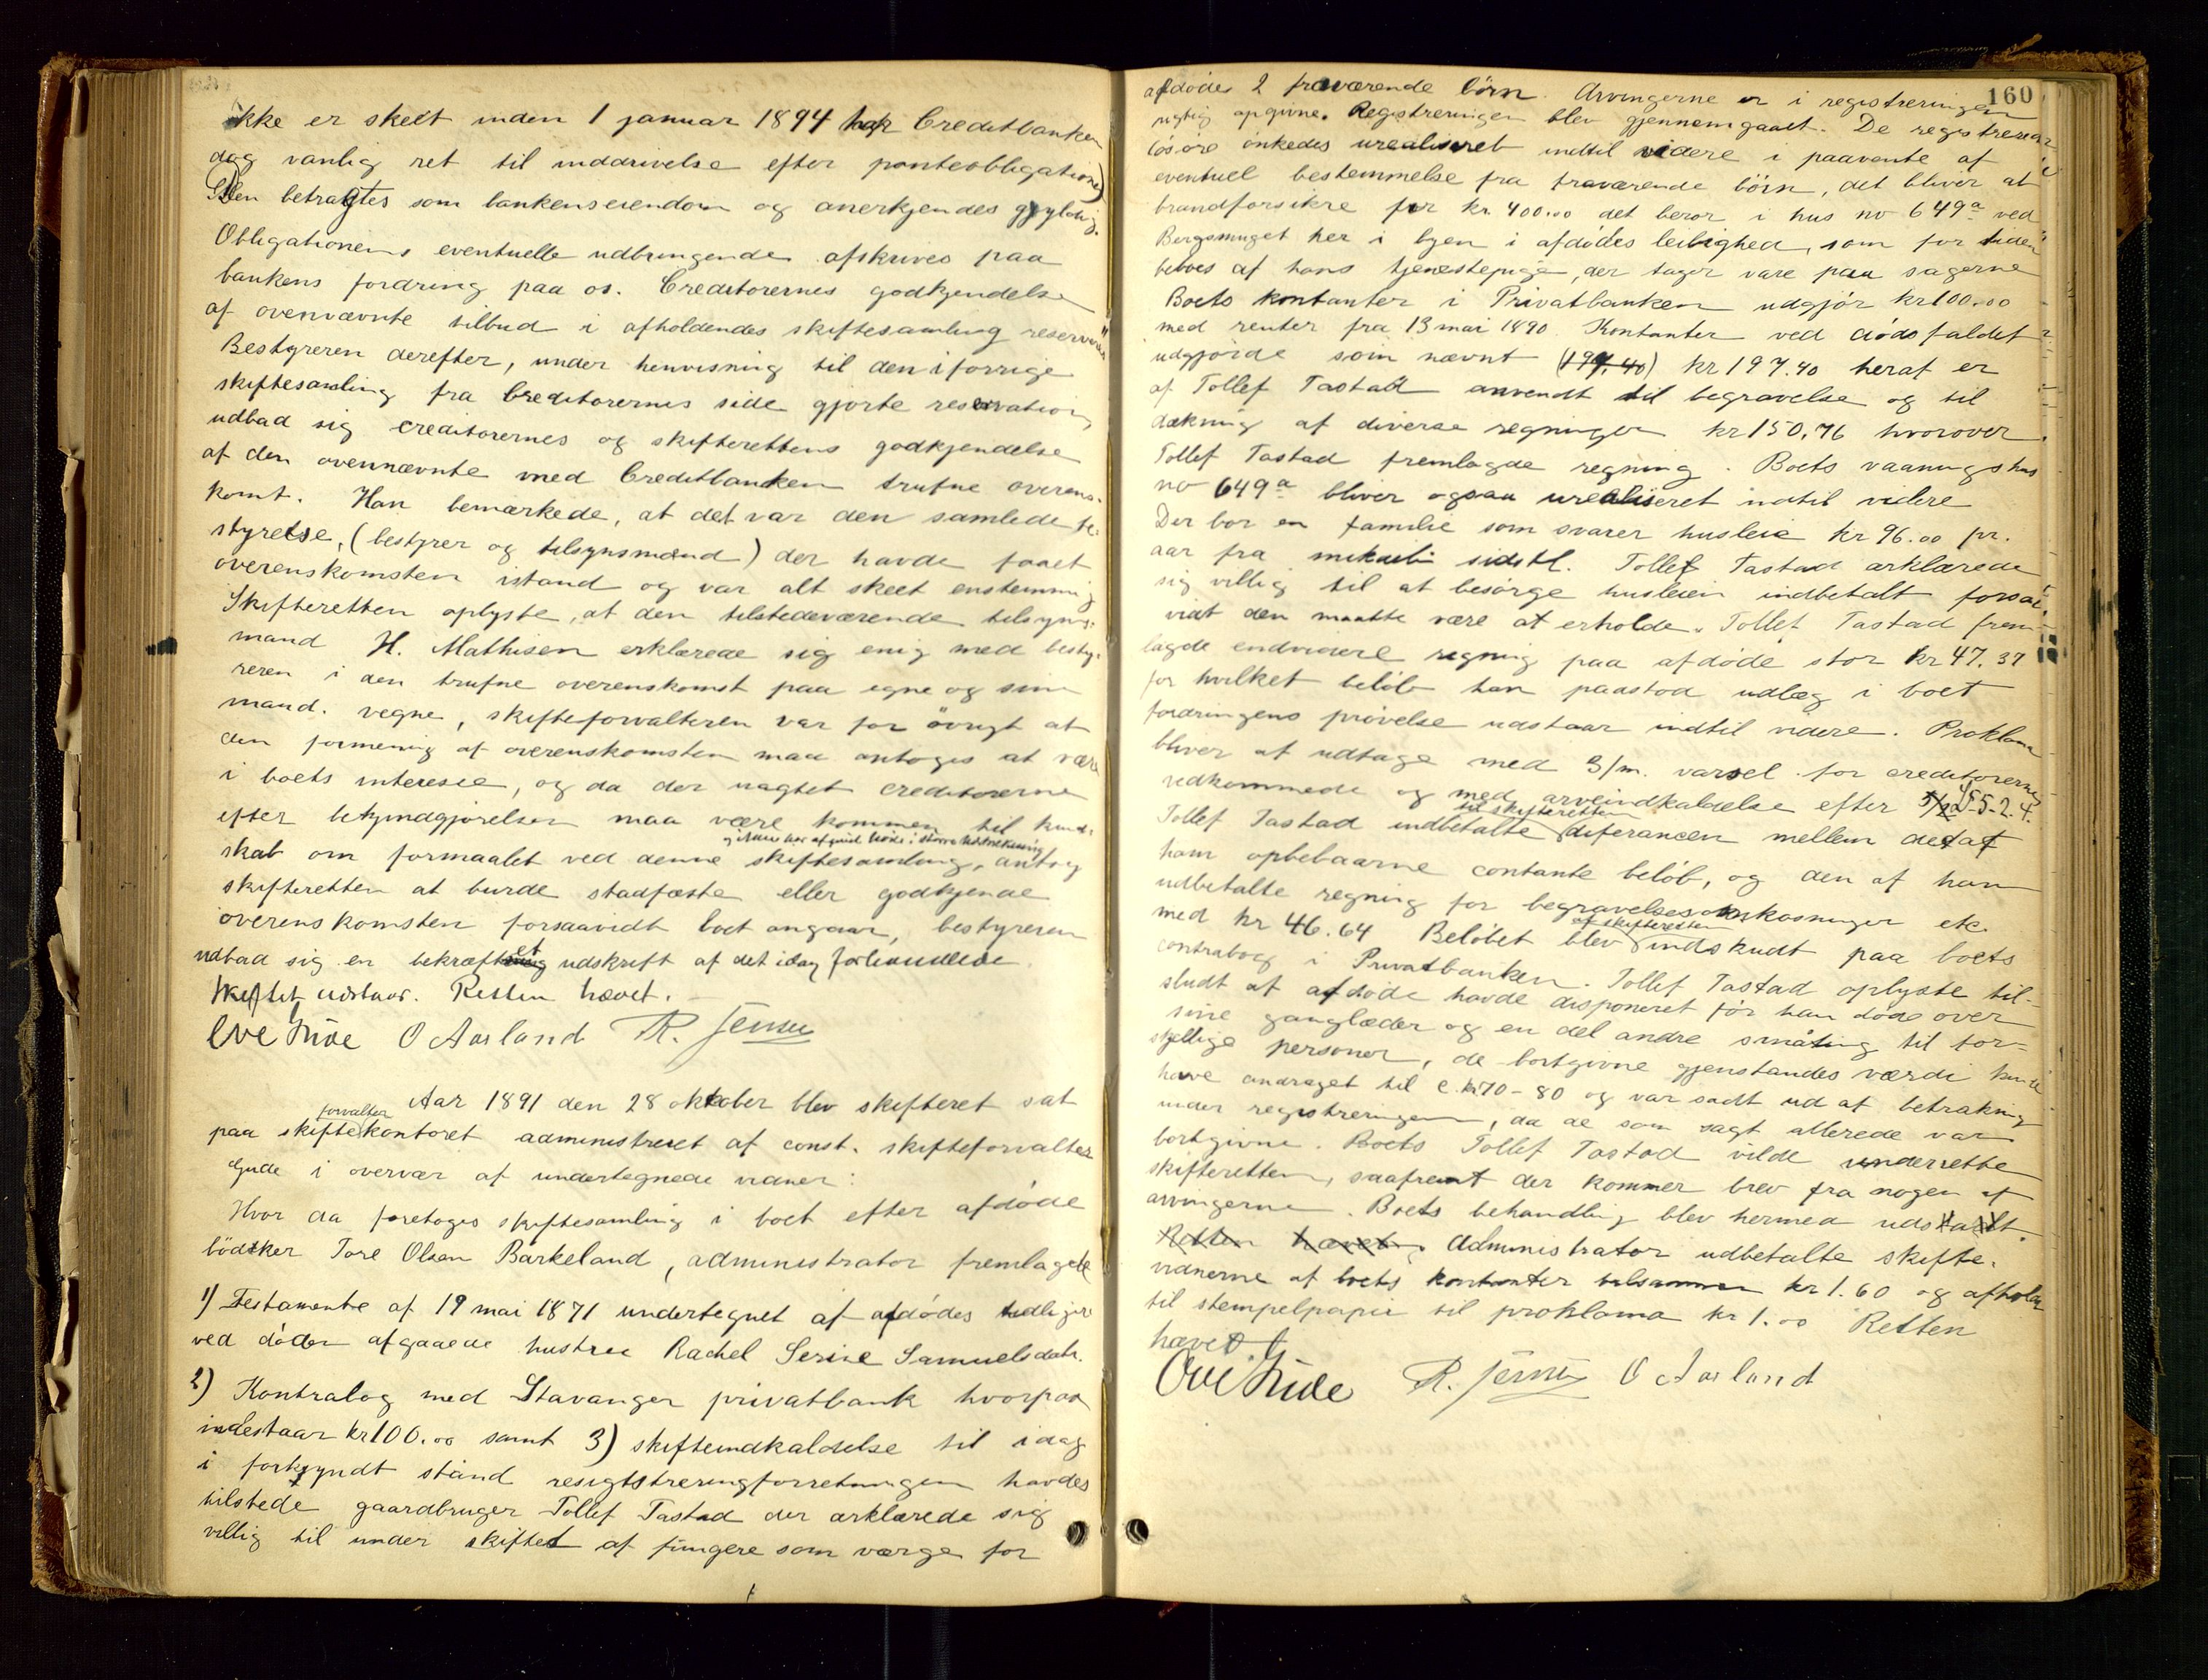 ikke er skeet inden 1 januar 1894 har Creditbanken
dog vanlig ret til inddrivelse efter panteobligationen)
Den betragtes som bankenseiendom og anerkjendes
Obligationens eventuelle udbringende afskrives paa
bankens fordring paa os. Creditorernes godkjendelse
af ovennævnte tilbud i afholdendes skiftesamling
Bestyreren derefter, under henvisning til den i forrige
skiftesamling fra Creditorernes side gjorte reservation,
udbad sig creditorernes og skifterettens godkjendelse
af den ovennævnte med Creditbanken trufne overens-
komt. Han bemærkede, at det var den samlede be-
styrelse, (bestyrer og tilsynsmænd) der havde faaet
overenskomsten istand og var alt skeet enstemmig
Skifteretten oplyste, at den tilstedeværende tilsyns-
mand H. Mathisen erklærede sig enig med besty-
reren i den trufne overenskomst paa egne og sin
mand. vegne, skifteforvalteren var for övrigt af
den formening af overenskomsten maa antages at være
i boets interesse, og da der uagtet creditorerne
efter bekjendtgjørelsen maa være kommen til kund-
skab om formaalet ved denne skiftesamling, antog
skifteretten at burde stadfæste eller godkjende
overenskomsten forsaavidt boet angaar, bestyreren
udbad sig en bekræftet udskrift af det idag forhandlede
Skiftet udstaar. Retten hævet.
Ove Gude O Aarland R. Jensen
Aar 1891 den 28 oktober blev skifteret sat
forvalter
paa skiftekontoret administreret af const. skifteforvalter
Gude i overvær af undertegnede vidner:
Hvor da foretoges skiftesamling i boet efter afdøde
bödtker Tore Olsen Barkeland, administrator fremlagde
1) Testamente af 19 mai 1871 undertegnet af afdødes tidligere
ved døden afgaaede hustru Rachel Serine Samuelsdatr.
2) Kontrabog med Stavanger privatbank hvorpaa
indestaar kr 100.00 samt 3) skifteindkaldelse til idag
i forkyndt stand resigtstreringforretningen havdes
tilstede gaardbruger Tollef Tastad der erklærede sig
villig til under skiftet at fungere som værge for
160
afdødes 2 fraværende börn. Arvingerne er i registreringen
rigtig opgivne. Registreringen blev gjennemgaaet. De registrerede
lösöre önskedes urealiseret indtil videre i paavente af
eventuel bestemmelse fra fraværende börn, det bliver at
brandforsikre for kr. 400.00 det beror i hus no 649a ved
Bergsmuget her i byen i afdødes leilighed, som for tiden
beboes af hans tjenestepige, der tager vare paa sagerne
Boets kontanter i Privatbanken udgjör kr 100.00
med renter fra 13 mai 1890. Kontanter ved dödsfaldet
udgjorde som nævnt (197.40) kr 197.40 heraf er
af Tollef Tastad anvendt til begravelse og til
dækning af diverse regninger kr 150.76 hvorover
Tollef Tastad fremlagde regning. Boets vaaningshus
no 649a bliver ogsaa urealiseret indtil videre
Der bor en familie som svarer husleie kr 96.00 pr.
aar fra mikaeli sidstl. Tollef Tastad erklærede
sig villig til at besörge husleien indbetalt forsaa-
vidt den maatte være at erholde. Tollef Tastad frem-
lagde endvidere regning paa afdøde stor kr 47.37
for hvilket belöb han paastod udlæg i boet
fordringens prövelse udstaar indtil videre. Proklama
bliver at udtage med 3/m. varsel for creditorernes
vedkommede og med arveindkaldelse efter
til skifteretten
Tollef Tastad indbetalte diferancen mellem det af
ham opbebaarne contante belöb, og den af ham
udbetalte regning for begravelsesomkosninger etc.
af skifteretten
med kr 46.64 Belöbet blev indskudt paa boets
contrabog i Privatbanken. Tollef Tastad oplyste til-
sludt at afdøde havde disponeret før han døde over
sine ganglæder og en del andre småting til for-
skjellige personer, de bortgivne gjenstandes værdi kunde
have andraget til c. kr 70-80 og var sadt ud af betrakning
under registreringen, da de som sagt allerede var
bortgivne. Boets Tollef Tastad vilde underrette
skifteretten, saafremt der kommer brev fra nogen af
arvingerne. Boets behandling blev hermed udstadt.
Retten hævet. Administrator udbetalte skifte-
vidnerne af boets kontanter tilsammen kr 1.60 og afholdt
til stempelpapir til proklama kr 1.00 Retten
hævet.
Ove Gude R. Jensen O Aarland